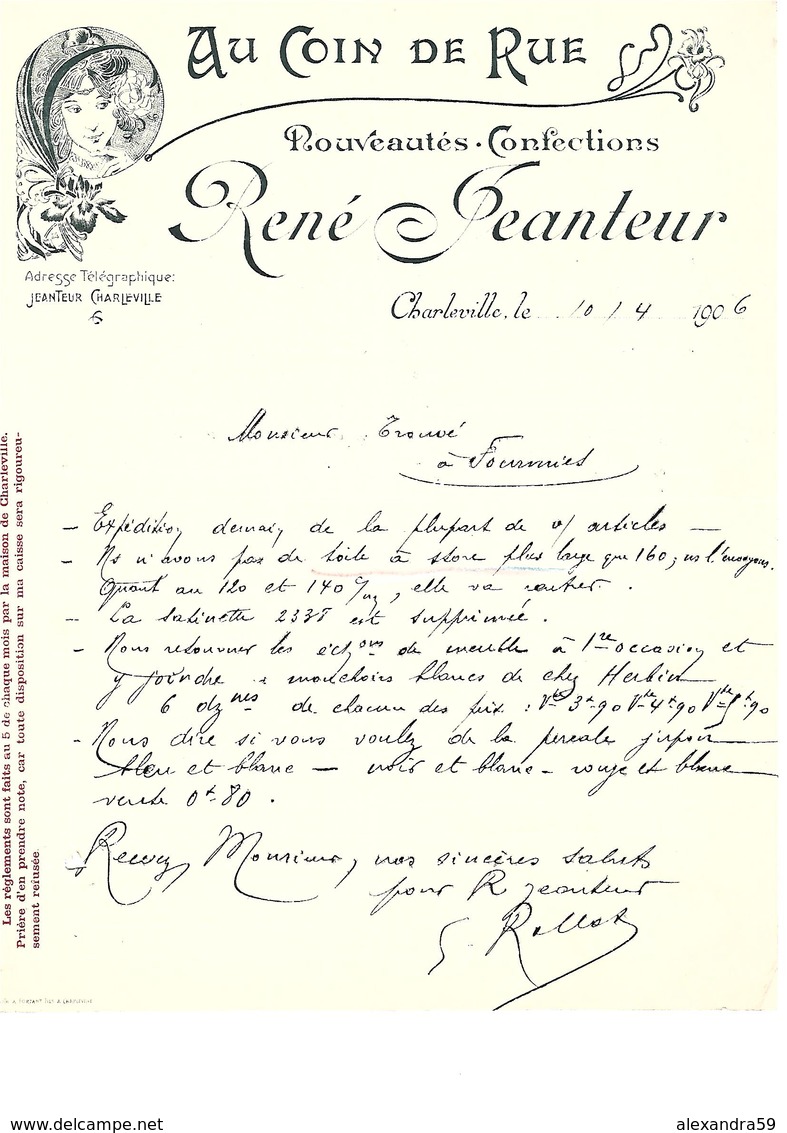 Au Coin de Rue
Nouveautés · Confections
René Jeanteur
Adresse Télégraphique:
JEANTEUR CHARLEVILLE
Charleville, le 10 / 4 1906
Monsieur Trouvé
à Fourmies
– Expédition demain de la plupart de v/ articles –
– Ns n'avons pas de toile à store plus large que 160; ns l'envoyons.
Quant au 120 et 140 c/m, elle va rentrer.
– La satinette 2338 est supprimée.
– Nous retourner les échons de meuble à 1re occasion et
y joindre mouchoirs blancs de chez Herbin
6 dznes de chacun des prix : Vte 3f90 Vte 4f90 Vte 5f90
– Nous dire si vous voulez de la percale jupon
bleu et blanc – noir et blanc – rouge et blanc
vente 0f80.
Recevez, Monsieur, nos sincères saluts
pour R Jeanteur
Rollot
Les règlements sont faits au 5 de chaque mois par la maison de Charleville.
Prière d'en prendre note, car toute disposition sur ma caisse sera rigoureu-
sement refusée
delcampe.net
alexandra59